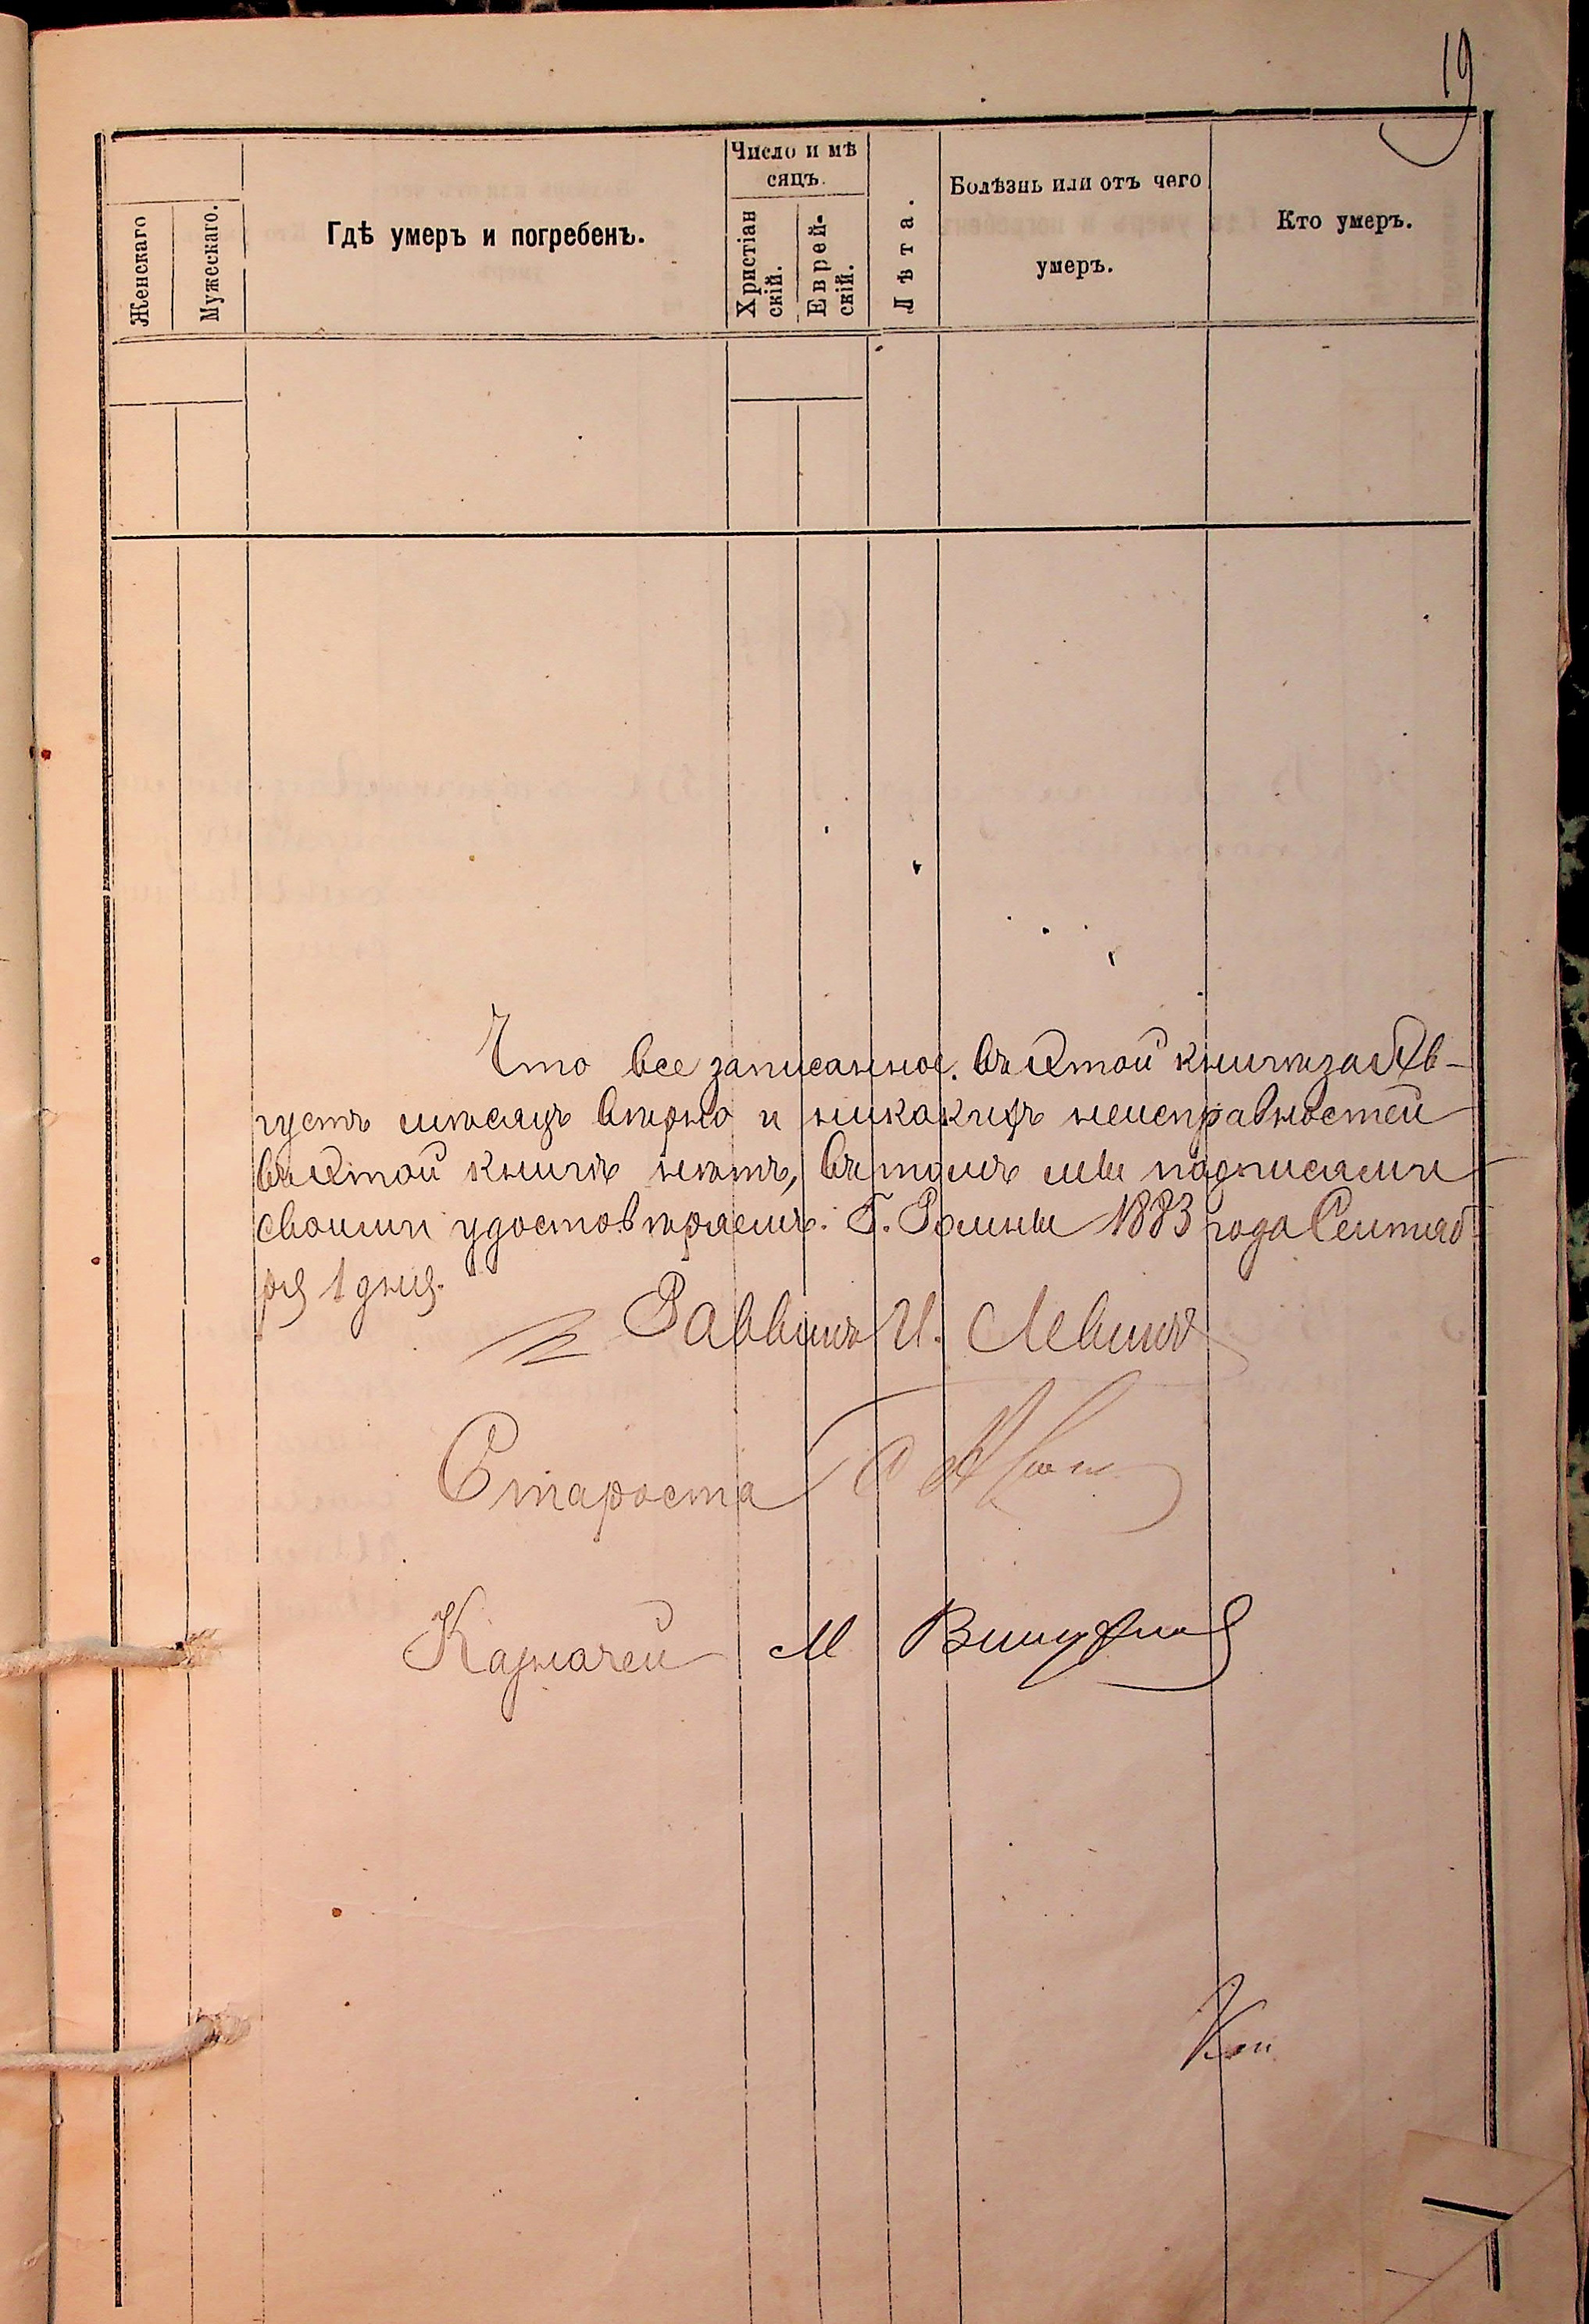 19
Число и мѣ
сяцъ.
Женскаго
Мужескаго.
Гдѣ умеръ и погребенъ.
Христіан
скій.
Еврей-
скій.
Лѣта.
Болѣзнь или отъ чего
умеръ.
Кто умеръ.
Что все записанное въ этой книгѣ за Ав-
густъ мѣсяцъ вѣрно и никакихъ неисправностей
въ этой книгѣ нѣтъ, въ томъ мы подписами
своими удостовѣряемъ. Г. Ромны 1883 года Сентяб-
ря 1 дня.
Раввинъ И. Левинъ
Староста
Казначей М